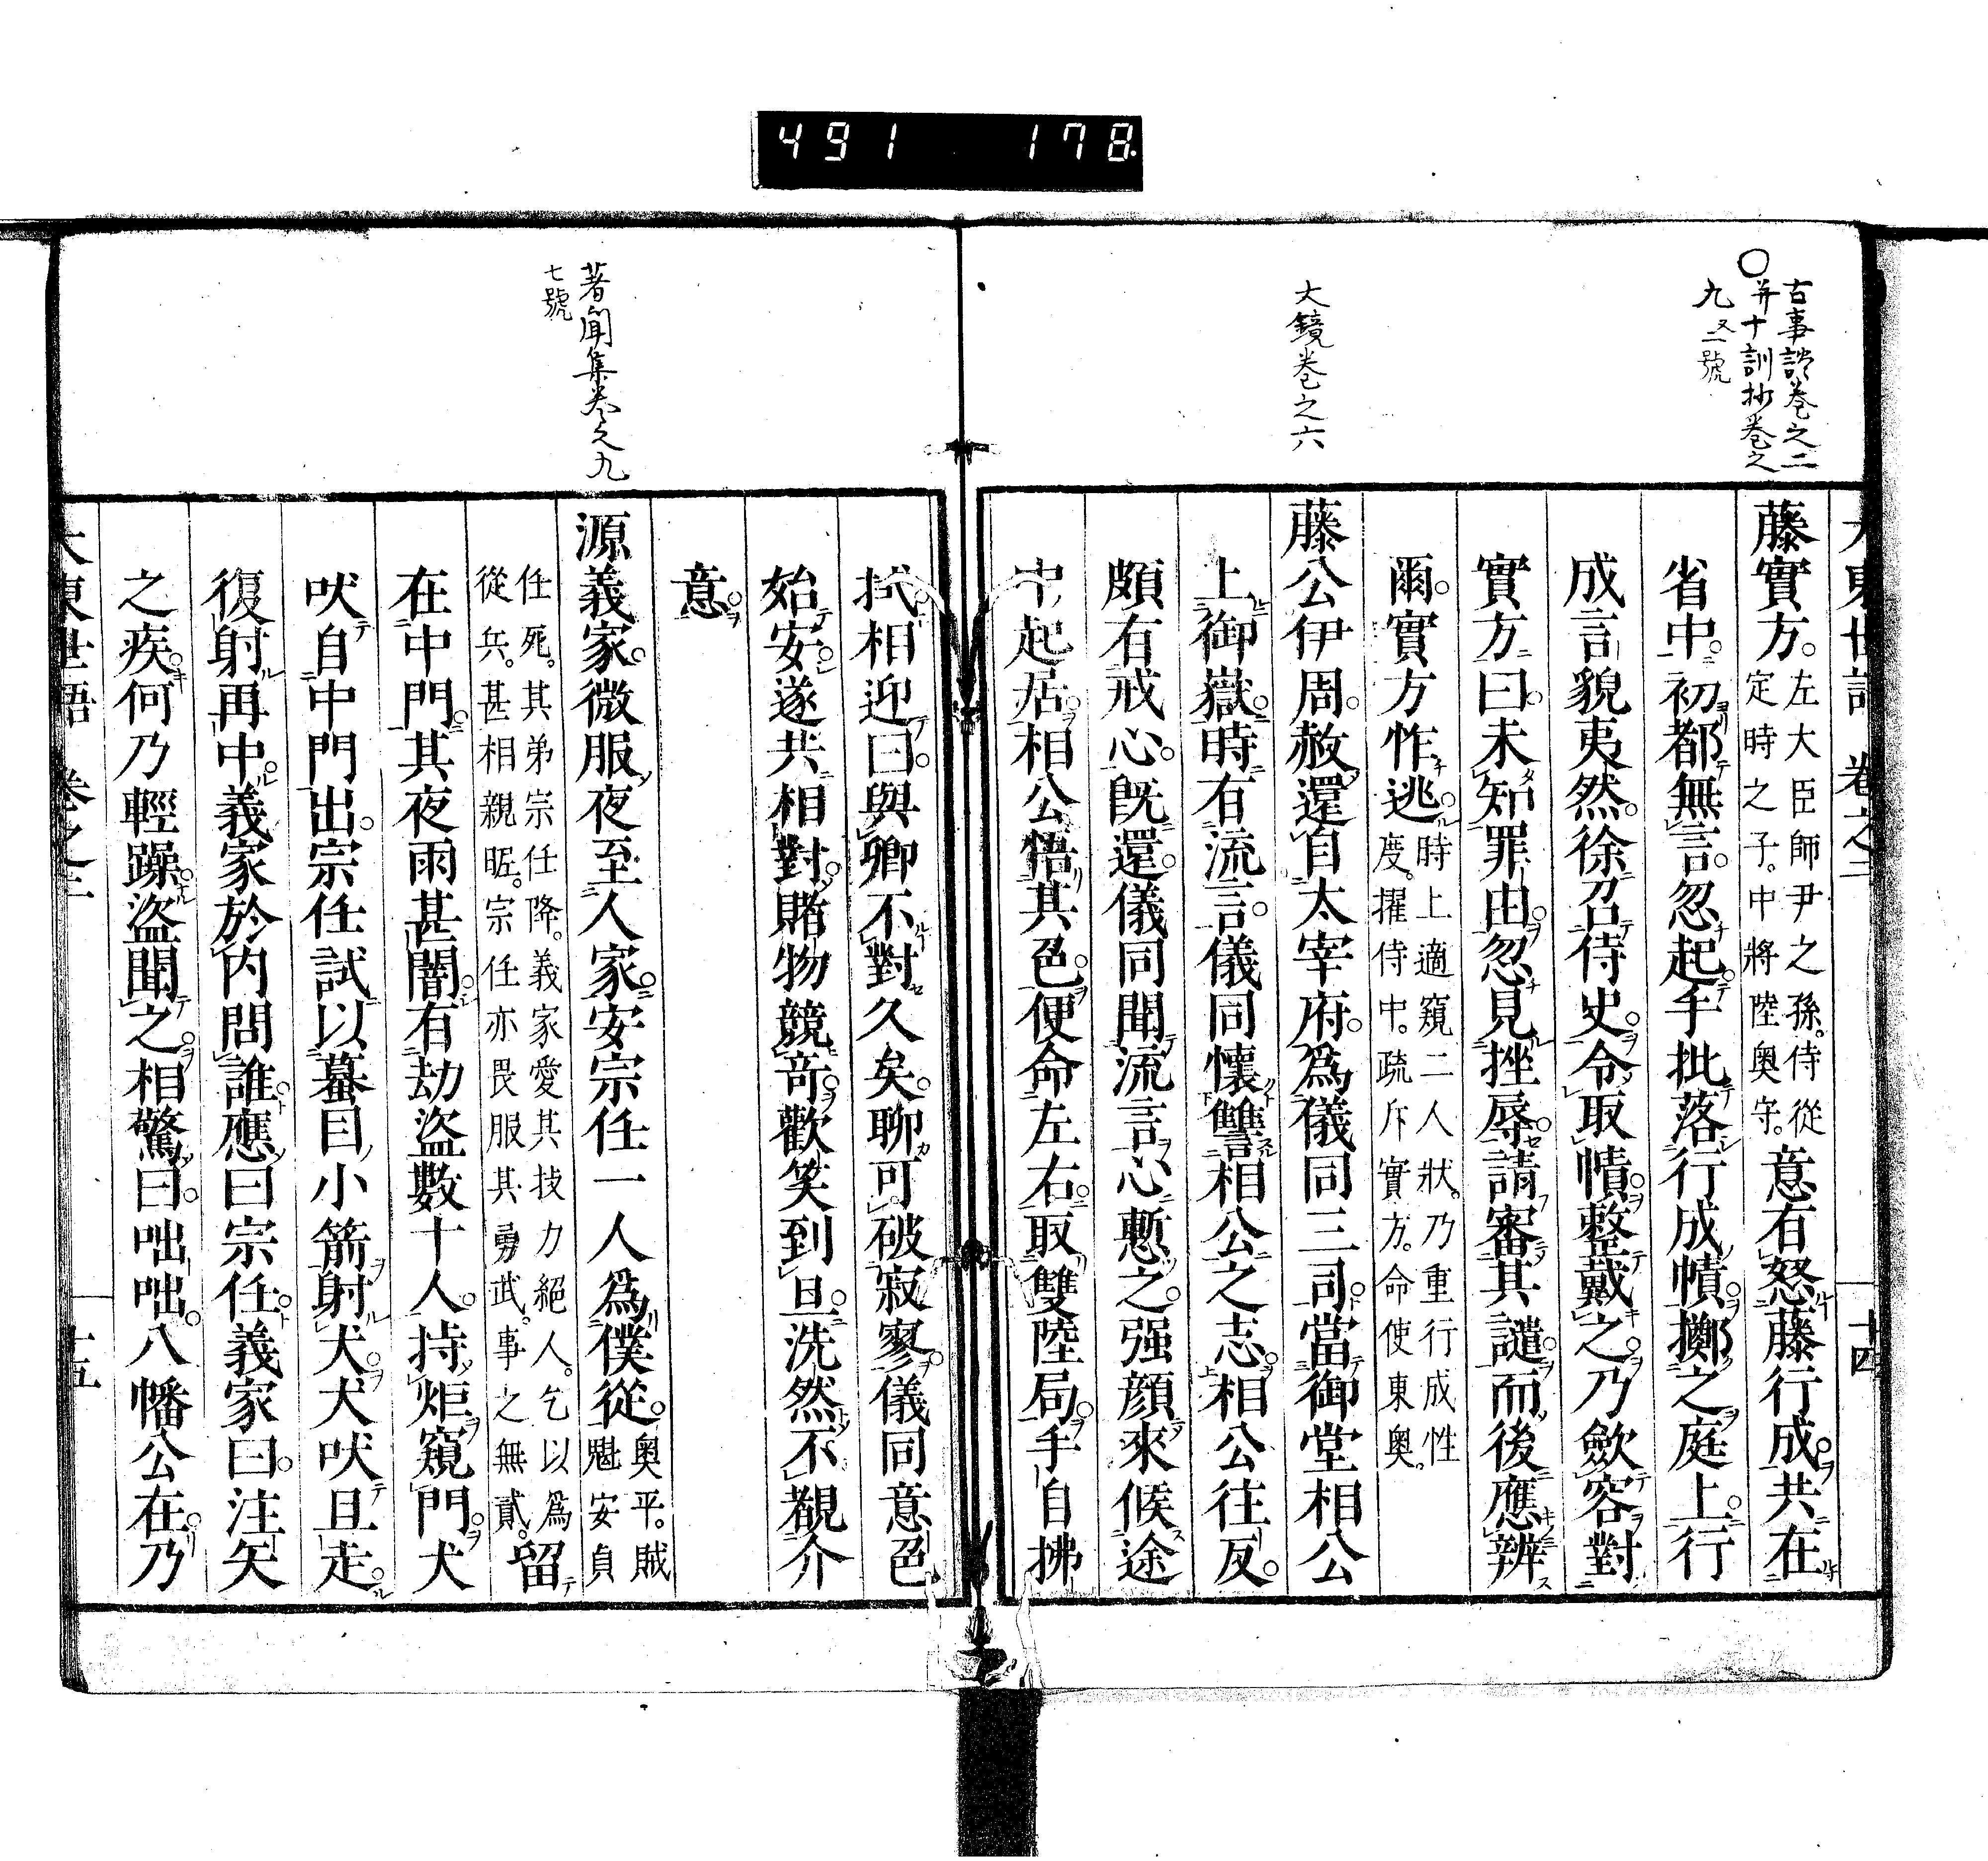 491 178
古事談卷之二
○并十訓抄卷之
九又二號
大鏡卷之六
大東世語 卷之二 十四
藤實方。左大臣師尹之孫。侍從
定時之子。中將陸奥守。意有怒藤行成。共在
省中。初都無言。忽起手批落行成幘。擲之庭上。行
成言貌夷然。徐召侍史。令取幘。整戴之。乃斂容對
實方曰。未知罪由。忽見挫辱。請審其譴。而後應辨
爾。實方怍逃。時上適窺二人狀。乃重行成性
度。擢侍中。疏斥實方。命使東奥。
藤公伊周。赦還自太宰府。爲儀同三司。當御堂相公
上御嶽。時有流言。儀同懷讐相公之志。相公往反。
頗有戒心。既還。儀同聞流言。心慙之。强顔來候。途
中起居。相公悟其色。便命左右。取雙陸局。手自拂
拭。相迎曰。與卿不對久矣。聊可破寂寥。儀同意色
始安。遂共相對。賭物競竒。歡笑到旦。洗然不覩介
意。
著聞集卷之九
七號
源義家。微服夜至人家。安宗任一人爲僕從。奥平。賊
魁安貞
任死。其弟宗任降。義家愛其技力絕人。乞以爲
從兵。甚相親昵。宗任亦畏服其勇武。事之無貳。留
在中門。其夜雨甚闇。有劫盜數十人。持炬窺門。犬
吠自中門出。宗任試以蟇目小箭。射犬。犬吠且走。
復射再中。義家於內問誰。應曰宗任。義家曰。注矢
之疾。何乃輕躁。盜聞之。相驚曰。咄咄。八幡公在。乃
大東世語 卷之二 十五